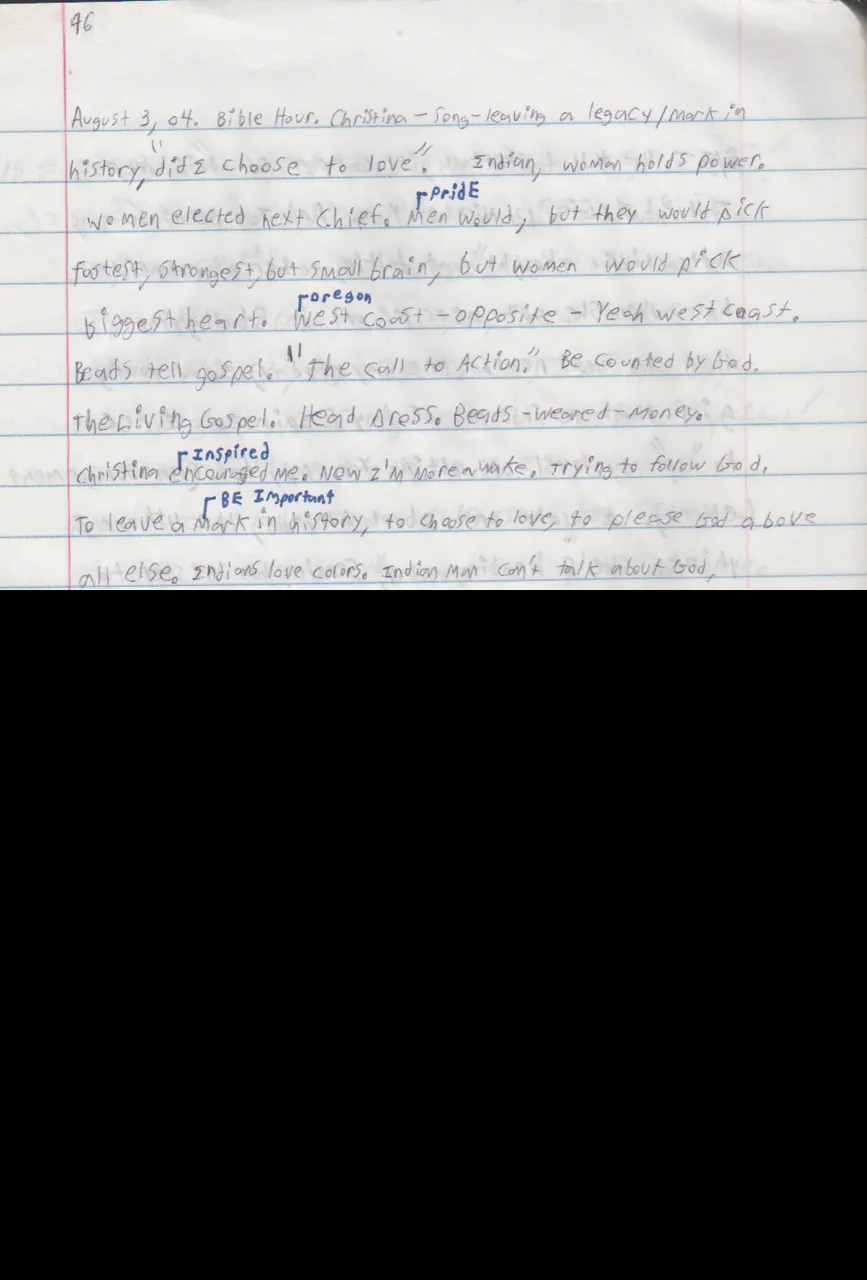 46
August 3, 04. Bible Hour. Christina - Song - leaving a legacy/mark in
history, "did I choose to love". Indian, woman holds power.
PridE
women elected next Chief. Men would, but they would pick
fastest, strongest, but small brain, but women would pick
biggest heart. West coast - opposite - Yeah west coast.
oregon
Beads tell gospel. "The call to Action." Be counted by God.
The Living Gospel. Head Dress. Beads - weared - money.
Inspired
Christina encouraged me. Now I'm more awake. Trying to follow God,
BE Important
To leave a mark in history, to choose to love, to please God above
all else. Indians love colors. Indian Man can't talk about God,